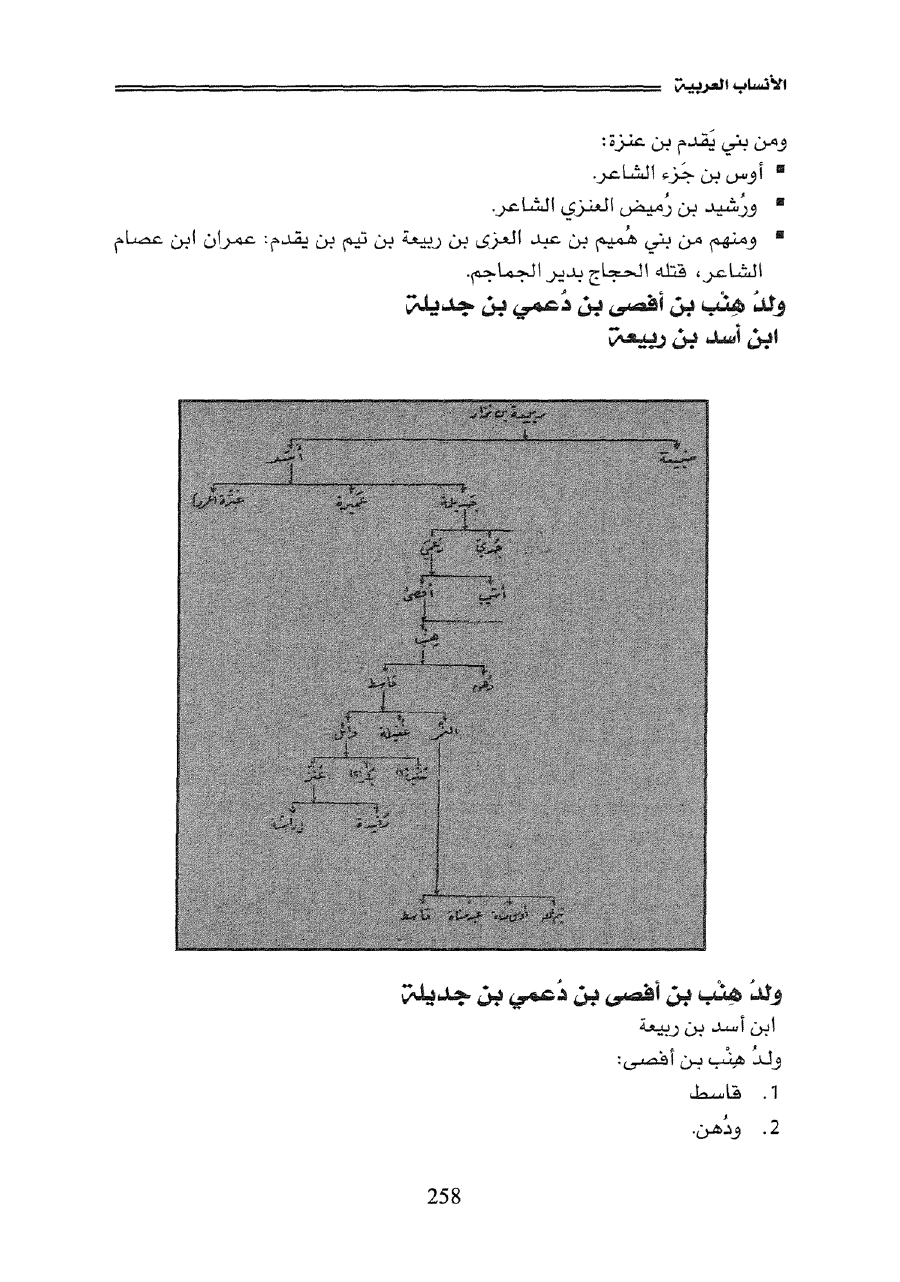 الأنساب العربية
ومن بني يَقدم بن عنزة:
▪ أوس بن جَزء الشاعر.
▪ ورُشيد بن رُميض العنزي الشاعر.
▪ ومنهم من بني هُميم بن عبد العزى بن ربيعة بن تيم بن يقدم: عمران ابن عصام
الشاعر، قتله الحجاج بدير الجماجم.
ولدُ هِنْب بن أفصى بن دُعمي بن جديلة
ابن أسد بن ربيعة
ربيعة بن نزار
ضبيعة أسد
جَديلة عَميرة عَنَزة
جُديّ دُعمي
أفصى
هِنب
دُهن قاسط
النمر غُفيلة وائل
عَنْز
رُفيدة
تيم الله أوس مناة عبد مناة قاسط
ولدُ هِنْب بن أفصى بن دُعمي بن جديلة
ابن أسد بن ربيعة
ولدُ هِنْب بن أفصى:
1. قاسط
2. ودُهن.
258